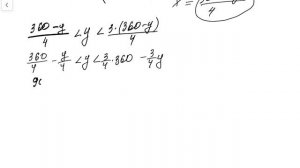 x = 4
(360-y)/4 < y < 3·(360-y)/4
360/4 - y/4 < y < 3/4·360 - 3/4 y
90